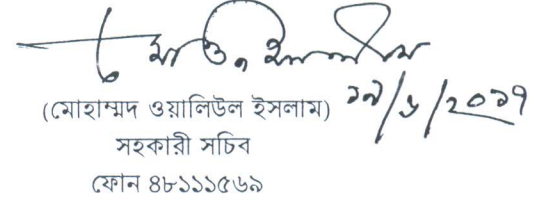 (মোহাম্মদ ওয়ালিউল ইসলাম)
১৯/৬/২০১৭
সহকারী সচিব
ফোন ৪৮১১১৫৬৯